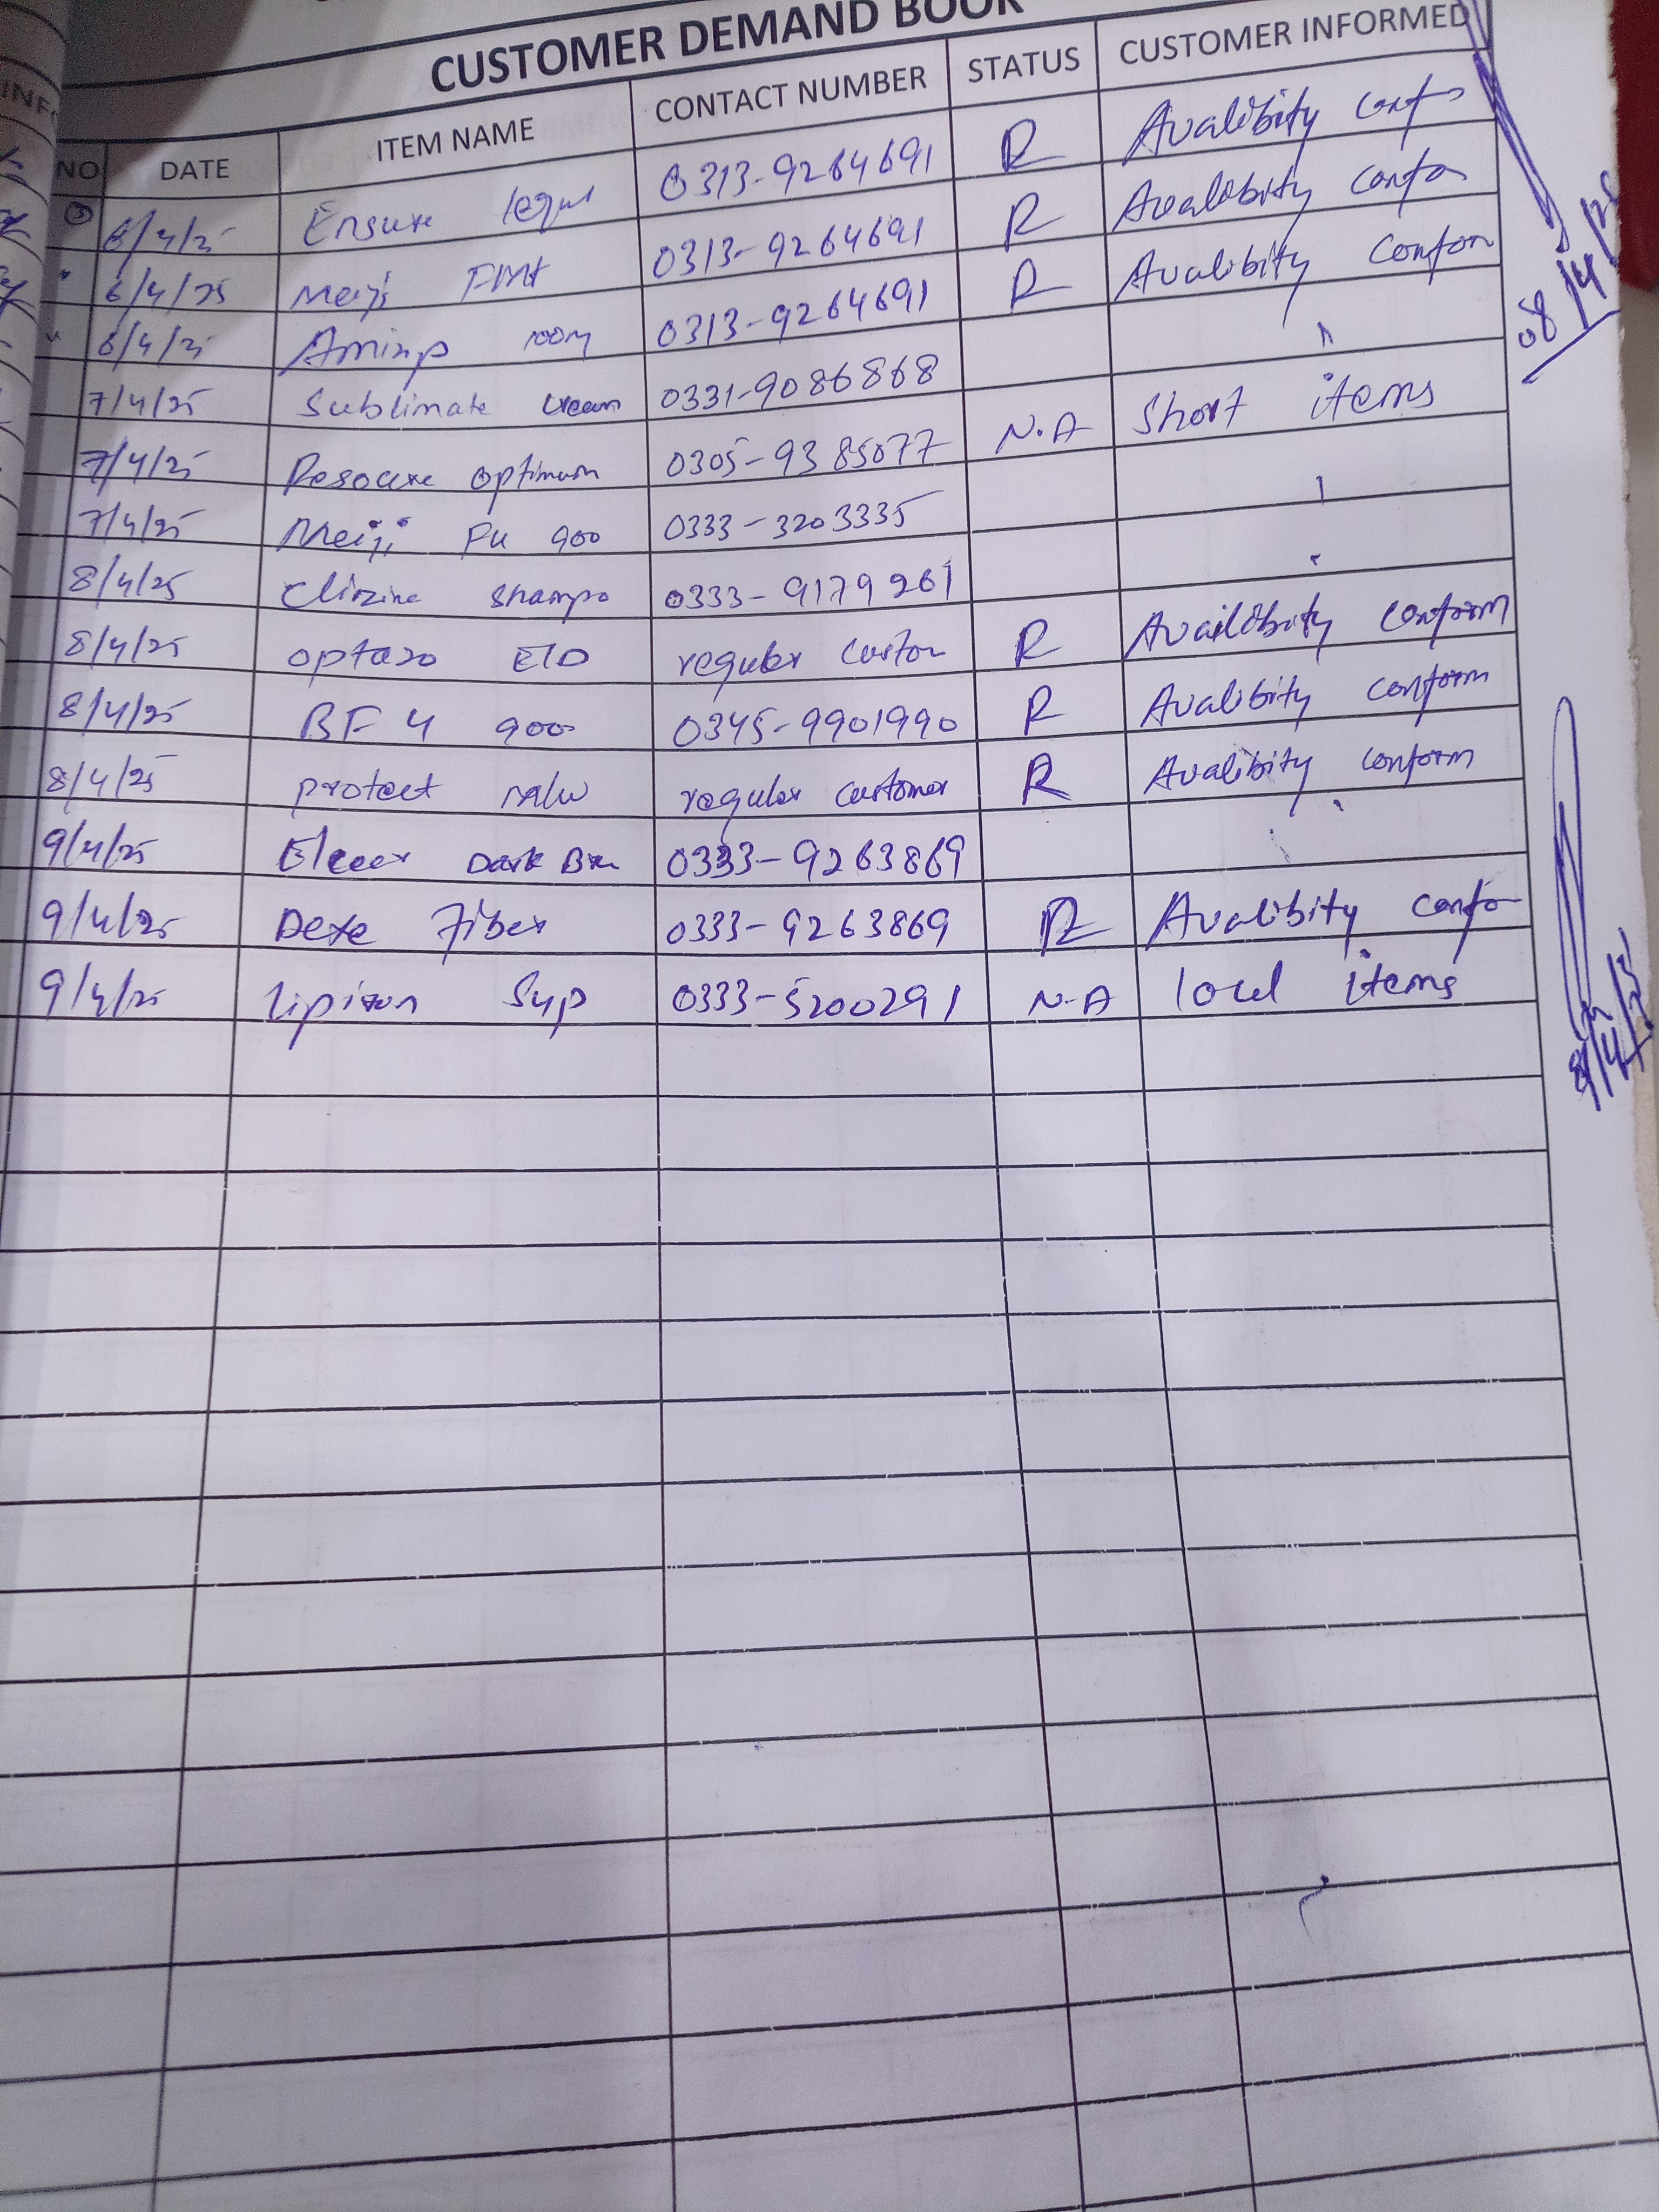 CUSTOMER DEMAND BOOK
NO DATE ITEM NAME CONTACT NUMBER STATUS CUSTOMER INFORMED
3 6/4/25 Ensure 0313-9264691 R Avalibity
6/4/25 Meiji FM 0313-9264691 R Avalibity
6/4/25 0313-9264691 R Avalibity Confom
7/4/25 Sublimate cream 0331-9086868
7/4/25 Resource optimum 0305-9385077 N.A Short items
7/4/25 Meiji FU 900 0333-3203335
8/4/25 Clinzine Shampo 0333-9179261
8/4/25 E/D regular R Availibity conform
8/4/25 BF 4 900 0345-9901990 R Avalibity conform
8/4/25 protect regular customer R Avalibity conform
9/4/25 Dark 0333-9263869
9/4/25 Fiber 0333-9263869 R Avalibity
9/4/25 Syp 0333-5200291 N-A local items
08/4/25